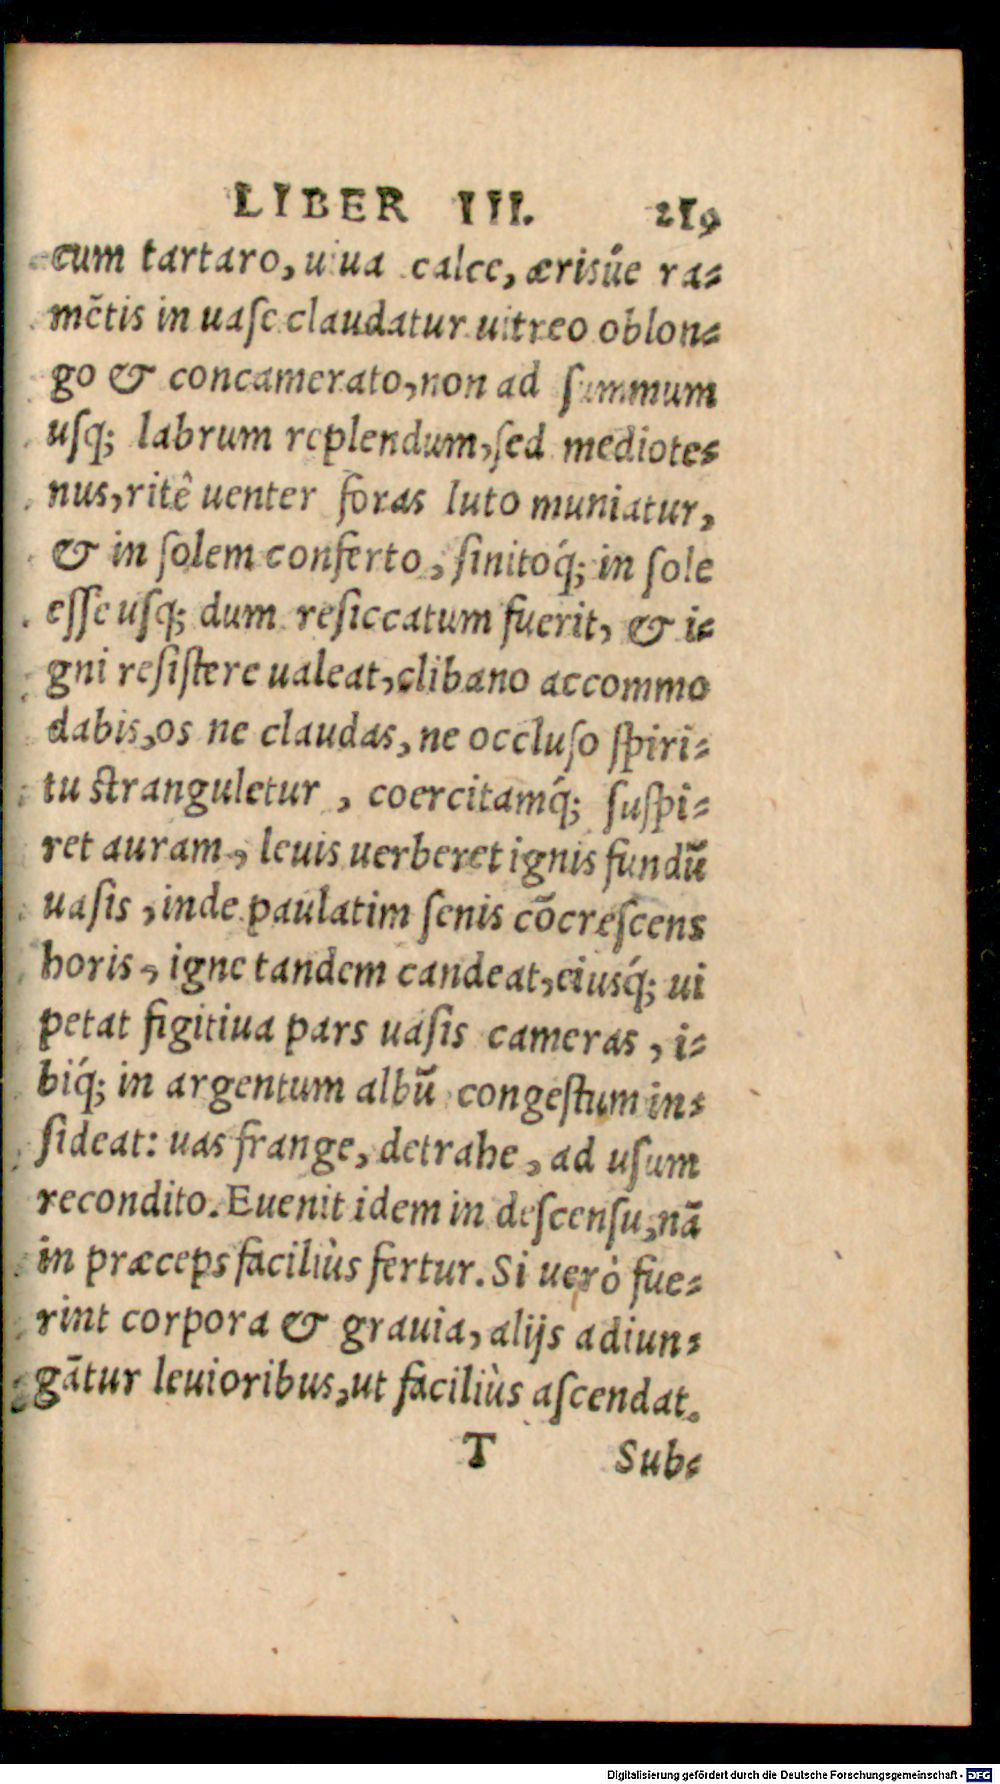 LIBER III. 219
cum tartaro, uiua calce, ærisúe ra⸗
mẽtis in uase claudatur uitreo oblon⸗
go & concamerato, non ad summum
usq; labrum replendum, sed mediote⸗
nus, ritê uenter foras luto muniatur,
& in solem conferto, sinitoq́; in sole
esse usq; dum resiccatum fuerit, & i⸗
gni resistere ualeat, clibano accommo
dabis, os ne claudas, ne occluso spiri⸗
tu stranguletur, coercitamq́; suspi⸗
ret auram, leuis uerberet ignis fundũ
uasis, inde paulatim senis cõcrescens
horis, igne tandem candeat, eiusq́; ui
petat figitiua pars uasis cameras, i⸗
biq́; in argentum albũ congestum in⸗
sideat: uas frange, detrahe, ad usum
recondito. Euenit idem in descensu, nã
in præceps faciliùs fertur. Si uerò fue⸗
rint corpora & grauia, alijs adiun⸗
gãtur leuioribus, ut faciliùs ascendat.
T Sub⸗
Digitalisierung gefördert durch die Deutsche Forschungsgemeinschaft - DFG